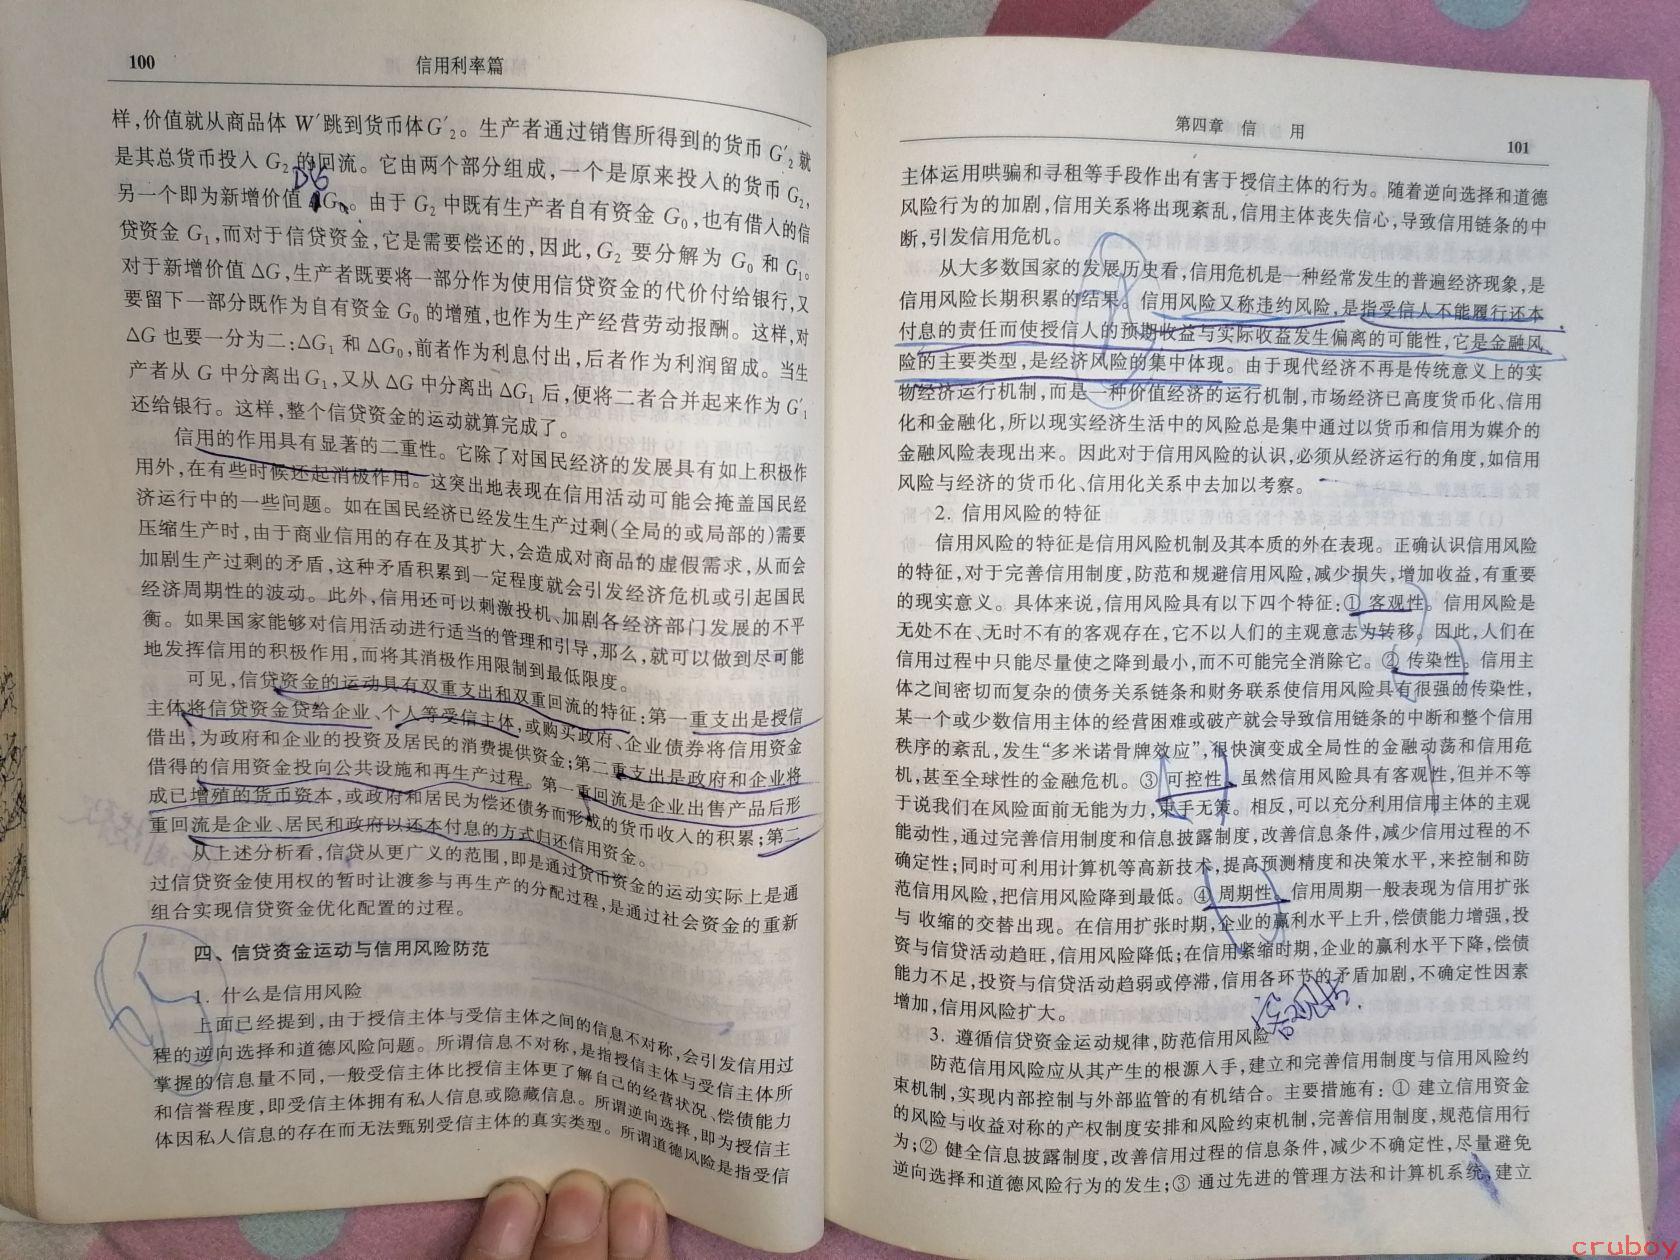 100 信用利率篇
样,价值就从商品体 W′跳到货币体G′₂。生产者通过销售所得到的货币 G′₂ 就
是其总货币投入 G₂ 的回流。它由两个部分组成,一个是原来投入的货币 G₂,
另一个即为新增价值 G₀。由于 G₂ 中既有生产者自有资金 G₀,也有借入的信
贷资金 G₁,而对于信贷资金,它是需要偿还的,因此,G₂ 要分解为 G₀ 和 G₁。
对于新增价值 ΔG,生产者既要将一部分作为使用信贷资金的代价付给银行,又
要留下一部分既作为自有资金 G₀ 的增殖,也作为生产经营劳动报酬。这样,对
ΔG 也要一分为二:ΔG₁ 和 ΔG₀,前者作为利息付出,后者作为利润留成。当生
产者从 G 中分离出 G₁,又从 ΔG 中分离出 ΔG₁ 后,便将二者合并起来作为 G′₁
还给银行。这样,整个信贷资金的运动就算完成了。
信用的作用具有显著的二重性。它除了对国民经济的发展具有如上积极作
用外,在有些时候还起消极作用。这突出地表现在信用活动可能会掩盖国民经
济运行中的一些问题。如在国民经济已经发生生产过剩(全局的或局部的)需要
压缩生产时,由于商业信用的存在及其扩大,会造成对商品的虚假需求,从而会
加剧生产过剩的矛盾,这种矛盾积累到一定程度就会引发经济危机或引起国民
经济周期性的波动。此外,信用还可以刺激投机、加剧各经济部门发展的不平
衡。如果国家能够对信用活动进行适当的管理和引导,那么,就可以做到尽可能
地发挥信用的积极作用,而将其消极作用限制到最低限度。
可见,信贷资金的运动具有双重支出和双重回流的特征:第一重支出是授信
主体将信贷资金贷给企业、个人等受信主体,或购买政府、企业债券将信用资金
借出,为政府和企业的投资及居民的消费提供资金;第二重支出是政府和企业将
借得的信用资金投向公共设施和再生产过程。第一重回流是企业出售产品后形
成已增殖的货币资本,或政府和居民为偿还债务而形成的货币收入的积累;第二
重回流是企业、居民和政府以还本付息的方式归还信用资金。
从上述分析看,信贷从更广义的范围,即是通过货币资金的运动实际上是通
过信贷资金使用权的暂时让渡参与再生产的分配过程,是通过社会资金的重新
组合实现信贷资金优化配置的过程。
四、信贷资金运动与信用风险防范
1. 什么是信用风险
上面已经提到,由于授信主体与受信主体之间的信息不对称,会引发信用过
程的逆向选择和道德风险问题。所谓信息不对称,是指授信主体与受信主体所
掌握的信息量不同,一般受信主体比授信主体更了解自己的经营状况、偿债能力
和信誉程度,即受信主体拥有私人信息或隐藏信息。所谓逆向选择,即为授信主
体因私人信息的存在而无法甄别受信主体的真实类型。所谓道德风险是指受信
第四章 信 用 101
主体运用哄骗和寻租等手段作出有害于授信主体的行为。随着逆向选择和道德
风险行为的加剧,信用关系将出现紊乱,信用主体丧失信心,导致信用链条的中
断,引发信用危机。
从大多数国家的发展历史看,信用危机是一种经常发生的普遍经济现象,是
信用风险长期积累的结果。信用风险又称违约风险,是指受信人不能履行还本
付息的责任而使授信人的预期收益与实际收益发生偏离的可能性,它是金融风
险的主要类型,是经济风险的集中体现。由于现代经济不再是传统意义上的实
物经济运行机制,而是一种价值经济的运行机制,市场经济已高度货币化、信用
化和金融化,所以现实经济生活中的风险总是集中通过以货币和信用为媒介的
金融风险表现出来。因此对于信用风险的认识,必须从经济运行的角度,如信用
风险与经济的货币化、信用化关系中去加以考察。
2. 信用风险的特征
信用风险的特征是信用风险机制及其本质的外在表现。正确认识信用风险
的特征,对于完善信用制度,防范和规避信用风险,减少损失,增加收益,有重要
的现实意义。具体来说,信用风险具有以下四个特征:① 客观性。信用风险是
无处不在、无时不有的客观存在,它不以人们的主观意志为转移。因此,人们在
信用过程中只能尽量使之降到最小,而不可能完全消除它。② 传染性。信用主
体之间密切而复杂的债务关系链条和财务联系使信用风险具有很强的传染性,
某一个或少数信用主体的经营困难或破产就会导致信用链条的中断和整个信用
秩序的紊乱,发生“多米诺骨牌效应”,很快演变成全局性的金融动荡和信用危
机,甚至全球性的金融危机。③ 可控性。虽然信用风险具有客观性,但并不等
于说我们在风险面前无能为力,束手无策。相反,可以充分利用信用主体的主观
能动性,通过完善信用制度和信息披露制度,改善信息条件,减少信用过程的不
确定性;同时可利用计算机等高新技术,提高预测精度和决策水平,来控制和防
范信用风险,把信用风险降到最低。④ 周期性。信用周期一般表现为信用扩张
与 收缩的交替出现。在信用扩张时期,企业的赢利水平上升,偿债能力增强,投
资与信贷活动趋旺,信用风险降低;在信用紧缩时期,企业的赢利水平下降,偿债
能力不足,投资与信贷活动趋弱或停滞,信用各环节的矛盾加剧,不确定性因素
增加,信用风险扩大。
3. 遵循信贷资金运动规律,防范信用风险
防范信用风险应从其产生的根源入手,建立和完善信用制度与信用风险约
束机制,实现内部控制与外部监管的有机结合。主要措施有:① 建立信用资金
的风险与收益对称的产权制度安排和风险约束机制,完善信用制度,规范信用行
为;② 健全信息披露制度,改善信用过程的信息条件,减少不确定性,尽量避免
逆向选择和道德风险行为的发生;③ 通过先进的管理方法和计算机系统,建立
cruboy